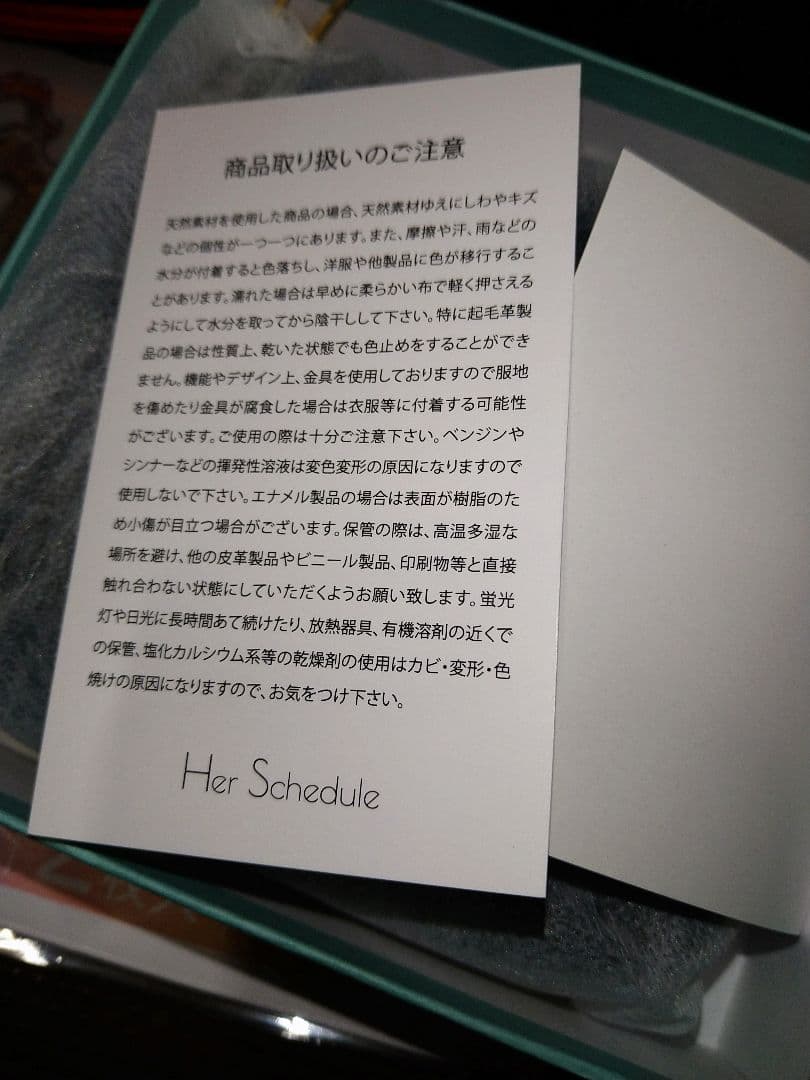 商品取り扱いのご注意
天然素材を使用した商品の場合、天然素材ゆえにしわやキズ
などの個性が一つ一つにあります。また、摩擦や汗、雨などの
水分が付着すると色落ちし、洋服や他製品に色が移行するこ
とがあります。濡れた場合は早めに柔らかい布で軽く押さえる
ようにして水分を取ってから陰干しして下さい。特に起毛革製
品の場合は性質上、乾いた状態でも色止めをすることができ
ません。機能やデザイン上、金具を使用しておりますので服地
を傷めたり金具が腐食した場合は衣服等に付着する可能性
がございます。ご使用の際は十分ご注意下さい。ベンジンや
シンナーなどの揮発性溶液は変色変形の原因になりますので
使用しないで下さい。エナメル製品の場合は表面が樹脂のた
め小傷が目立つ場合がございます。保管の際は、高温多湿な
場所を避け、他の皮革製品やビニール製品、印刷物等と直接
触れ合わない状態にしていただくようお願い致します。蛍光
灯や日光に長時間あて続けたり、放熱器具、有機溶剤の近くで
の保管、塩化カルシウム系等の乾燥剤の使用はカビ・変形・色
焼けの原因になりますので、お気をつけ下さい。
Her Schedule